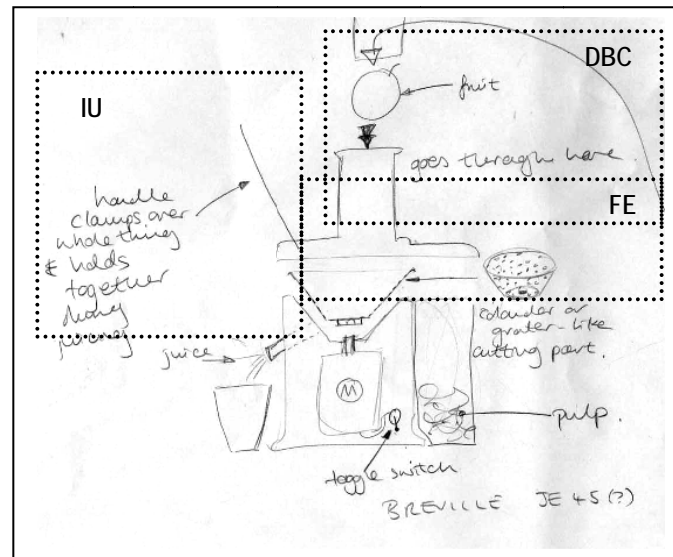 DBC
IU
fruit
goes through here.
FE
handle
clamps over
whole thing
& holds
together
during
juicing
colander or
grater-like
cutting part.
juice
M
pulp.
toggle switch
BREVILLE JE 45 (?)